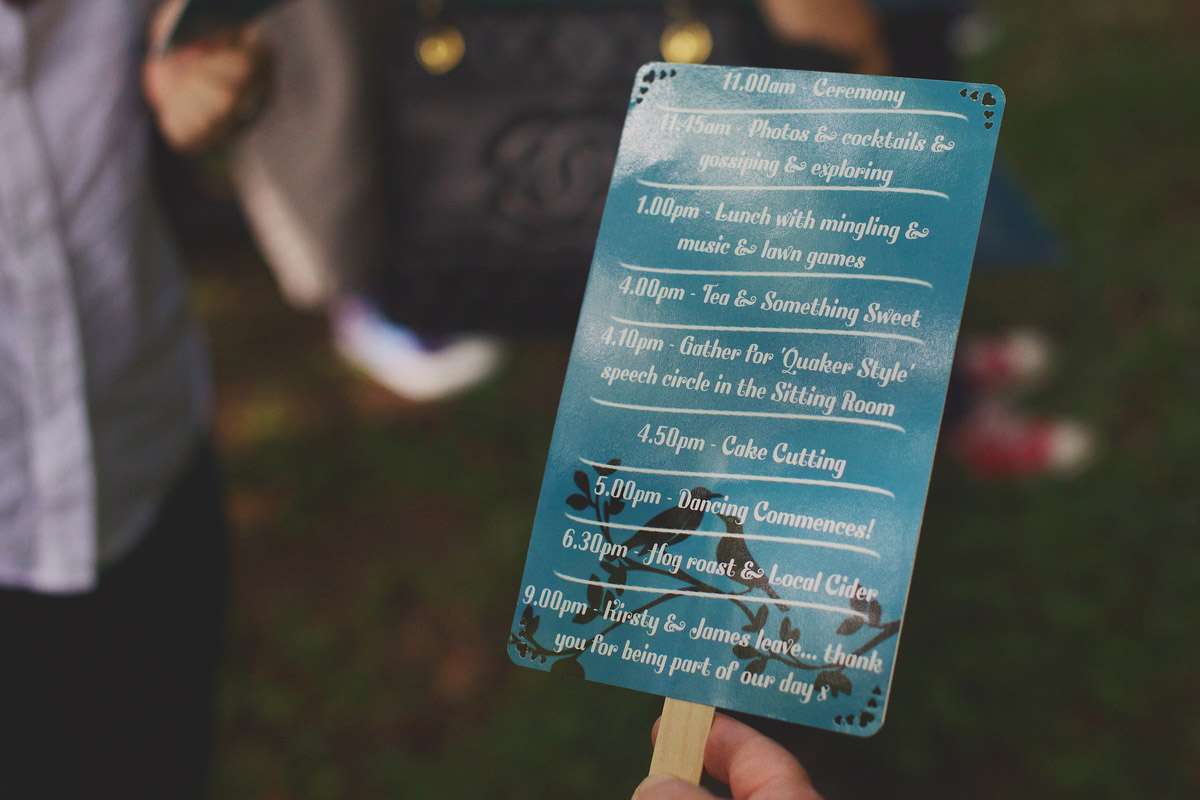 11.00am - Ceremony
11.45am - Photos & cocktails &
gossiping & exploring
1.00pm - Lunch with mingling &
music & lawn games
4.00pm - Tea & Something Sweet
4.10pm - Gather for 'Quaker Style'
speech circle in the Sitting Room
4.50pm - Cake Cutting
5.00pm - Dancing Commences!
6.30pm - Hog roast & Local Cider
9.00pm - Kirsty & James leave... thank
you for being part of our day x